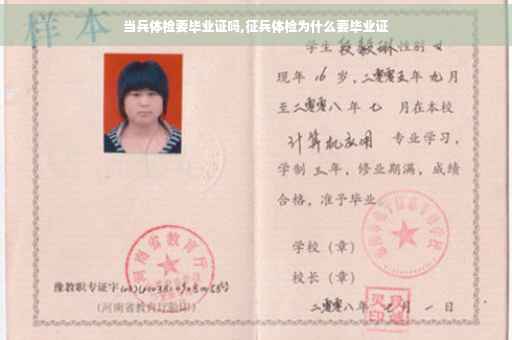 当兵体检要毕业证吗,征兵体检为什么要毕业证
样本
学生 段毅琳 性别 女
现年 16 岁,二零零五年九月
至二零零八年七 月在本校
计算机应用 专业学习,
学制 三 年,修业期满,成绩
合格,准予毕业
学校(章)
校长(章)
二零零八年 月 一 日
河南省教育厅
豫教职专证字
(河南省教育厅验印)